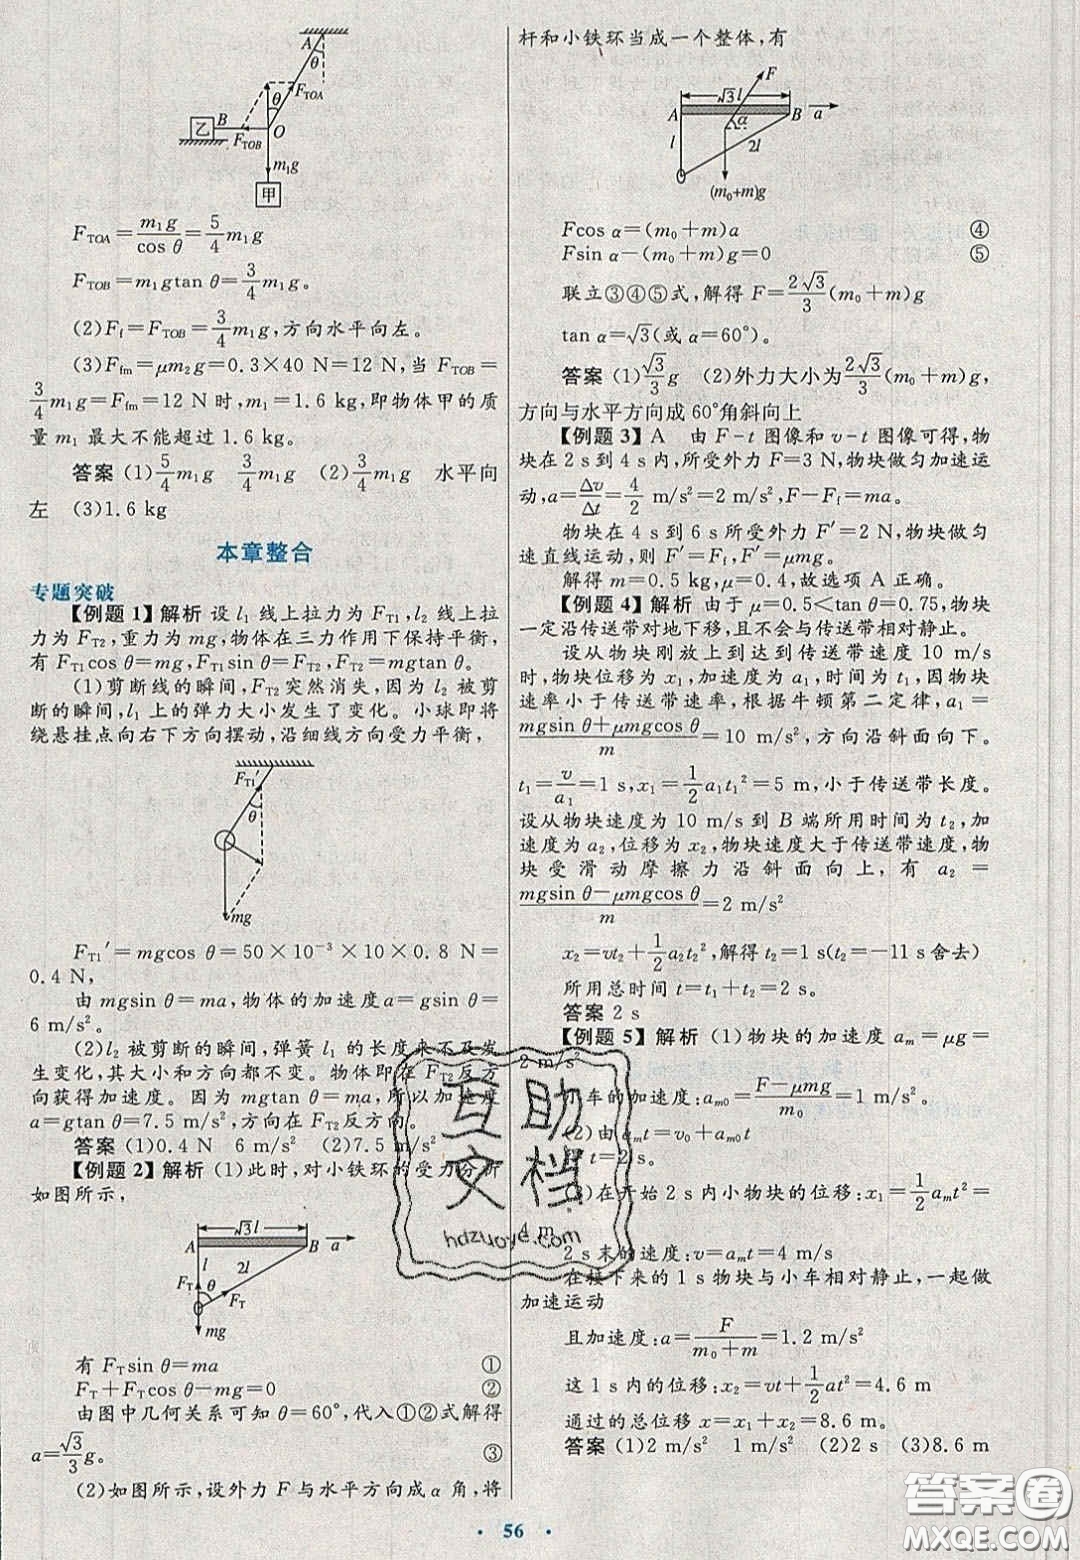 A
θ
F_TOA
θ
乙 B O
F_TOB
m₁g
甲
F_TOA=m₁g/cos θ=5/4 m₁g
F_TOB=m₁gtan θ=3/4 m₁g。
(2)F_f=F_TOB=3/4 m₁g,方向水平向左。
(3)F_fm=μm₂g=0.3×40 N=12 N,当 F_TOB=
3/4 m₁g=F_fm=12 N 时,m₁=1.6 kg,即物体甲的质
量 m₁ 最大不能超过 1.6 kg。
答案 (1)5/4 m₁g 3/4 m₁g (2)3/4 m₁g 水平向
左 (3)1.6 kg
本章整合
专题突破
【例题 1】解析 设 l₁ 线上拉力为 F_T1,l₂ 线上拉
力为 F_T2,重力为 mg,物体在三力作用下保持平衡,
有 F_T1cos θ=mg,F_T1sin θ=F_T2,F_T2=mgtan θ。
(1)剪断线的瞬间,F_T2突然消失,因为 l₂ 被剪
断的瞬间,l₁ 上的弹力大小发生了变化。小球即将
绕悬挂点向右下方向摆动,沿细线方向受力平衡,
F_T1′
θ
mg
F_T1′=mgcos θ=50×10⁻³×10×0.8 N=
0.4 N,
由 mgsin θ=ma,物体的加速度a=gsin θ=
6 m/s²。
(2)l₂ 被剪断的瞬间,弹簧 l₁ 的长度来不及发
生变化,其大小和方向都不变。物体即在 F_T2反方
向获得加速度。因为 mgtan θ=ma,所以加速度
a=gtan θ=7.5 m/s²,方向在 F_T2反方向。
答案 (1)0.4 N 6 m/s² (2)7.5 m/s²
【例题 2】解析 (1)此时,对小铁环的受力分析
如图所示,
√3l
A B a
l 2l
F_T θ
F_T
mg
有 F_Tsin θ=ma ①
F_T+F_Tcos θ−mg=0 ②
由图中几何关系可知 θ=60°,代入①②式解得
a=√3/3 g。 ③
(2)如图所示,设外力 F 与水平方向成 α 角,将
杆和小铁环当成一个整体,有
F
√3l
A B a
α
l 2l
(m₀+m)g
Fcos α=(m₀+m)a ④
Fsin α−(m₀+m)g=0 ⑤
联立③④⑤式,解得 F=2√3/3(m₀+m)g
tan α=√3(或 α=60°)。
答案 (1)√3/3 g (2)外力大小为2√3/3(m₀+m)g,
方向与水平方向成 60°角斜向上
【例题 3】A 由 F-t 图像和 v-t 图像可得,物
块在 2 s到 4 s内,所受外力 F=3 N,物块做匀加速运
动,a=Δv/Δt=4/2 m/s²=2 m/s²,F−F_f=ma。
物块在 4 s到 6 s所受外力 F′=2 N,物块做匀
速直线运动,则 F′=F_f,F′=μmg。
解得 m=0.5 kg,μ=0.4,故选项 A 正确。
【例题 4】解析 由于 μ=0.5<tan θ=0.75,物块
一定沿传送带对地下移,且不会与传送带相对静止。
设从物块刚放上到达到传送带速度 10 m/s
时,物块位移为 x₁,加速度为 a₁,时间为 t₁,因物块
速率小于传送带速率,根据牛顿第二定律,a₁=
mgsin θ+μmgcos θ/m=10 m/s²,方向沿斜面向下。
t₁=v/a₁=1 s,x₁=1/2 a₁t₁²=5 m,小于传送带长度。
设从物块速度为 10 m/s到 B 端所用时间为 t₂,加
速度为 a₂,位移为 x₂,物块速度大于传送带速度,物
块受滑动摩擦力沿斜面向上,有 a₂=
mgsin θ−μmgcos θ/m=2 m/s²
x₂=vt₂+1/2 a₂t₂²,解得 t₂=1 s(t₂=−11 s舍去)
所用总时间 t=t₁+t₂=2 s。
答案 2 s
【例题 5】解析 (1)物块的加速度 a_m=μg=
2 m/s²
小车的加速度:a_m0=F−μmg/m₀=1 m/s²。
(2)由 a_mt=v₀+a_m0t
t=2 s。
(3)在开始 2 s内小物块的位移:x₁=1/2 a_mt²=
4 m
2 s末的速度:v=a_mt=4 m/s
在接下来的 1 s物块与小车相对静止,一起做
加速运动
且加速度:a=F/m₀+m=1.2 m/s²
这 1 s内的位移:x₂=vt+1/2 at²=4.6 m
通过的总位移 x=x₁+x₂=8.6 m。
答案 (1)2 m/s² 1 m/s² (2)2 s (3)8.6 m
· 56 ·
互助
文档
hdzuoye.com
答案圈
MXQE.COM